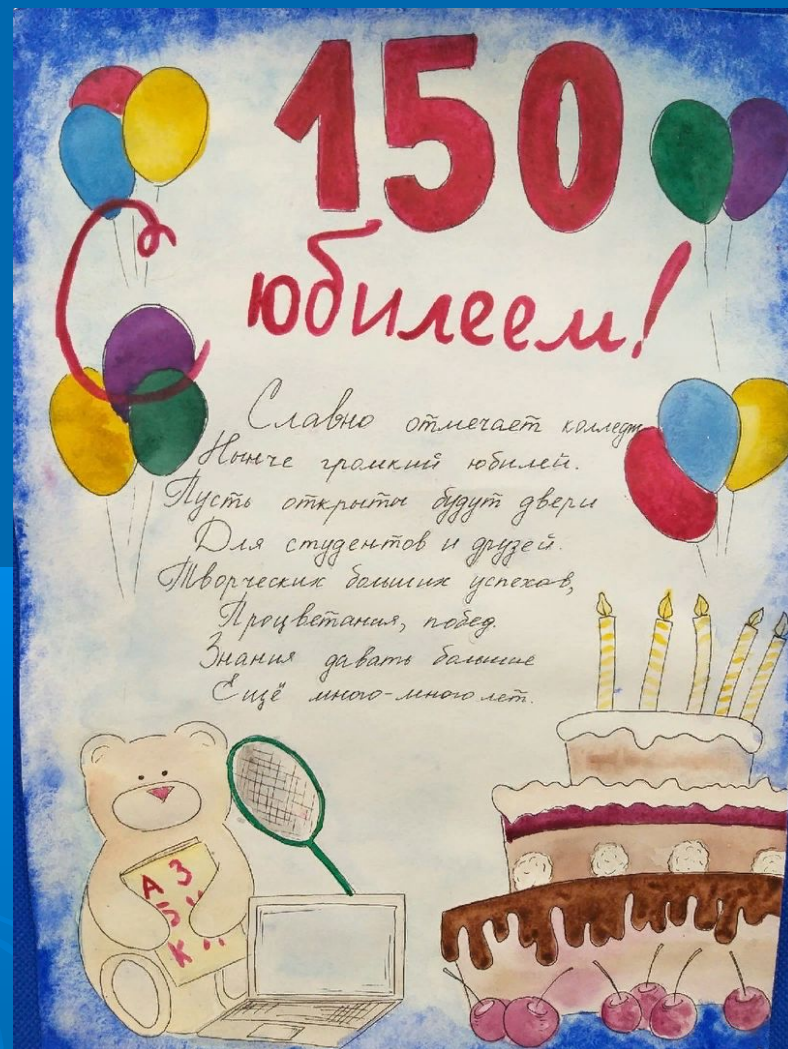 150
С юбилеем!
Славно отмечает колледж
Нынче громкий юбилей.
Пусть открыты будут двери
Для студентов и друзей.
Творческих больших успехов,
Процветания, побед.
Знания давать большие
Ещё много-много лет.
А З
Б
К